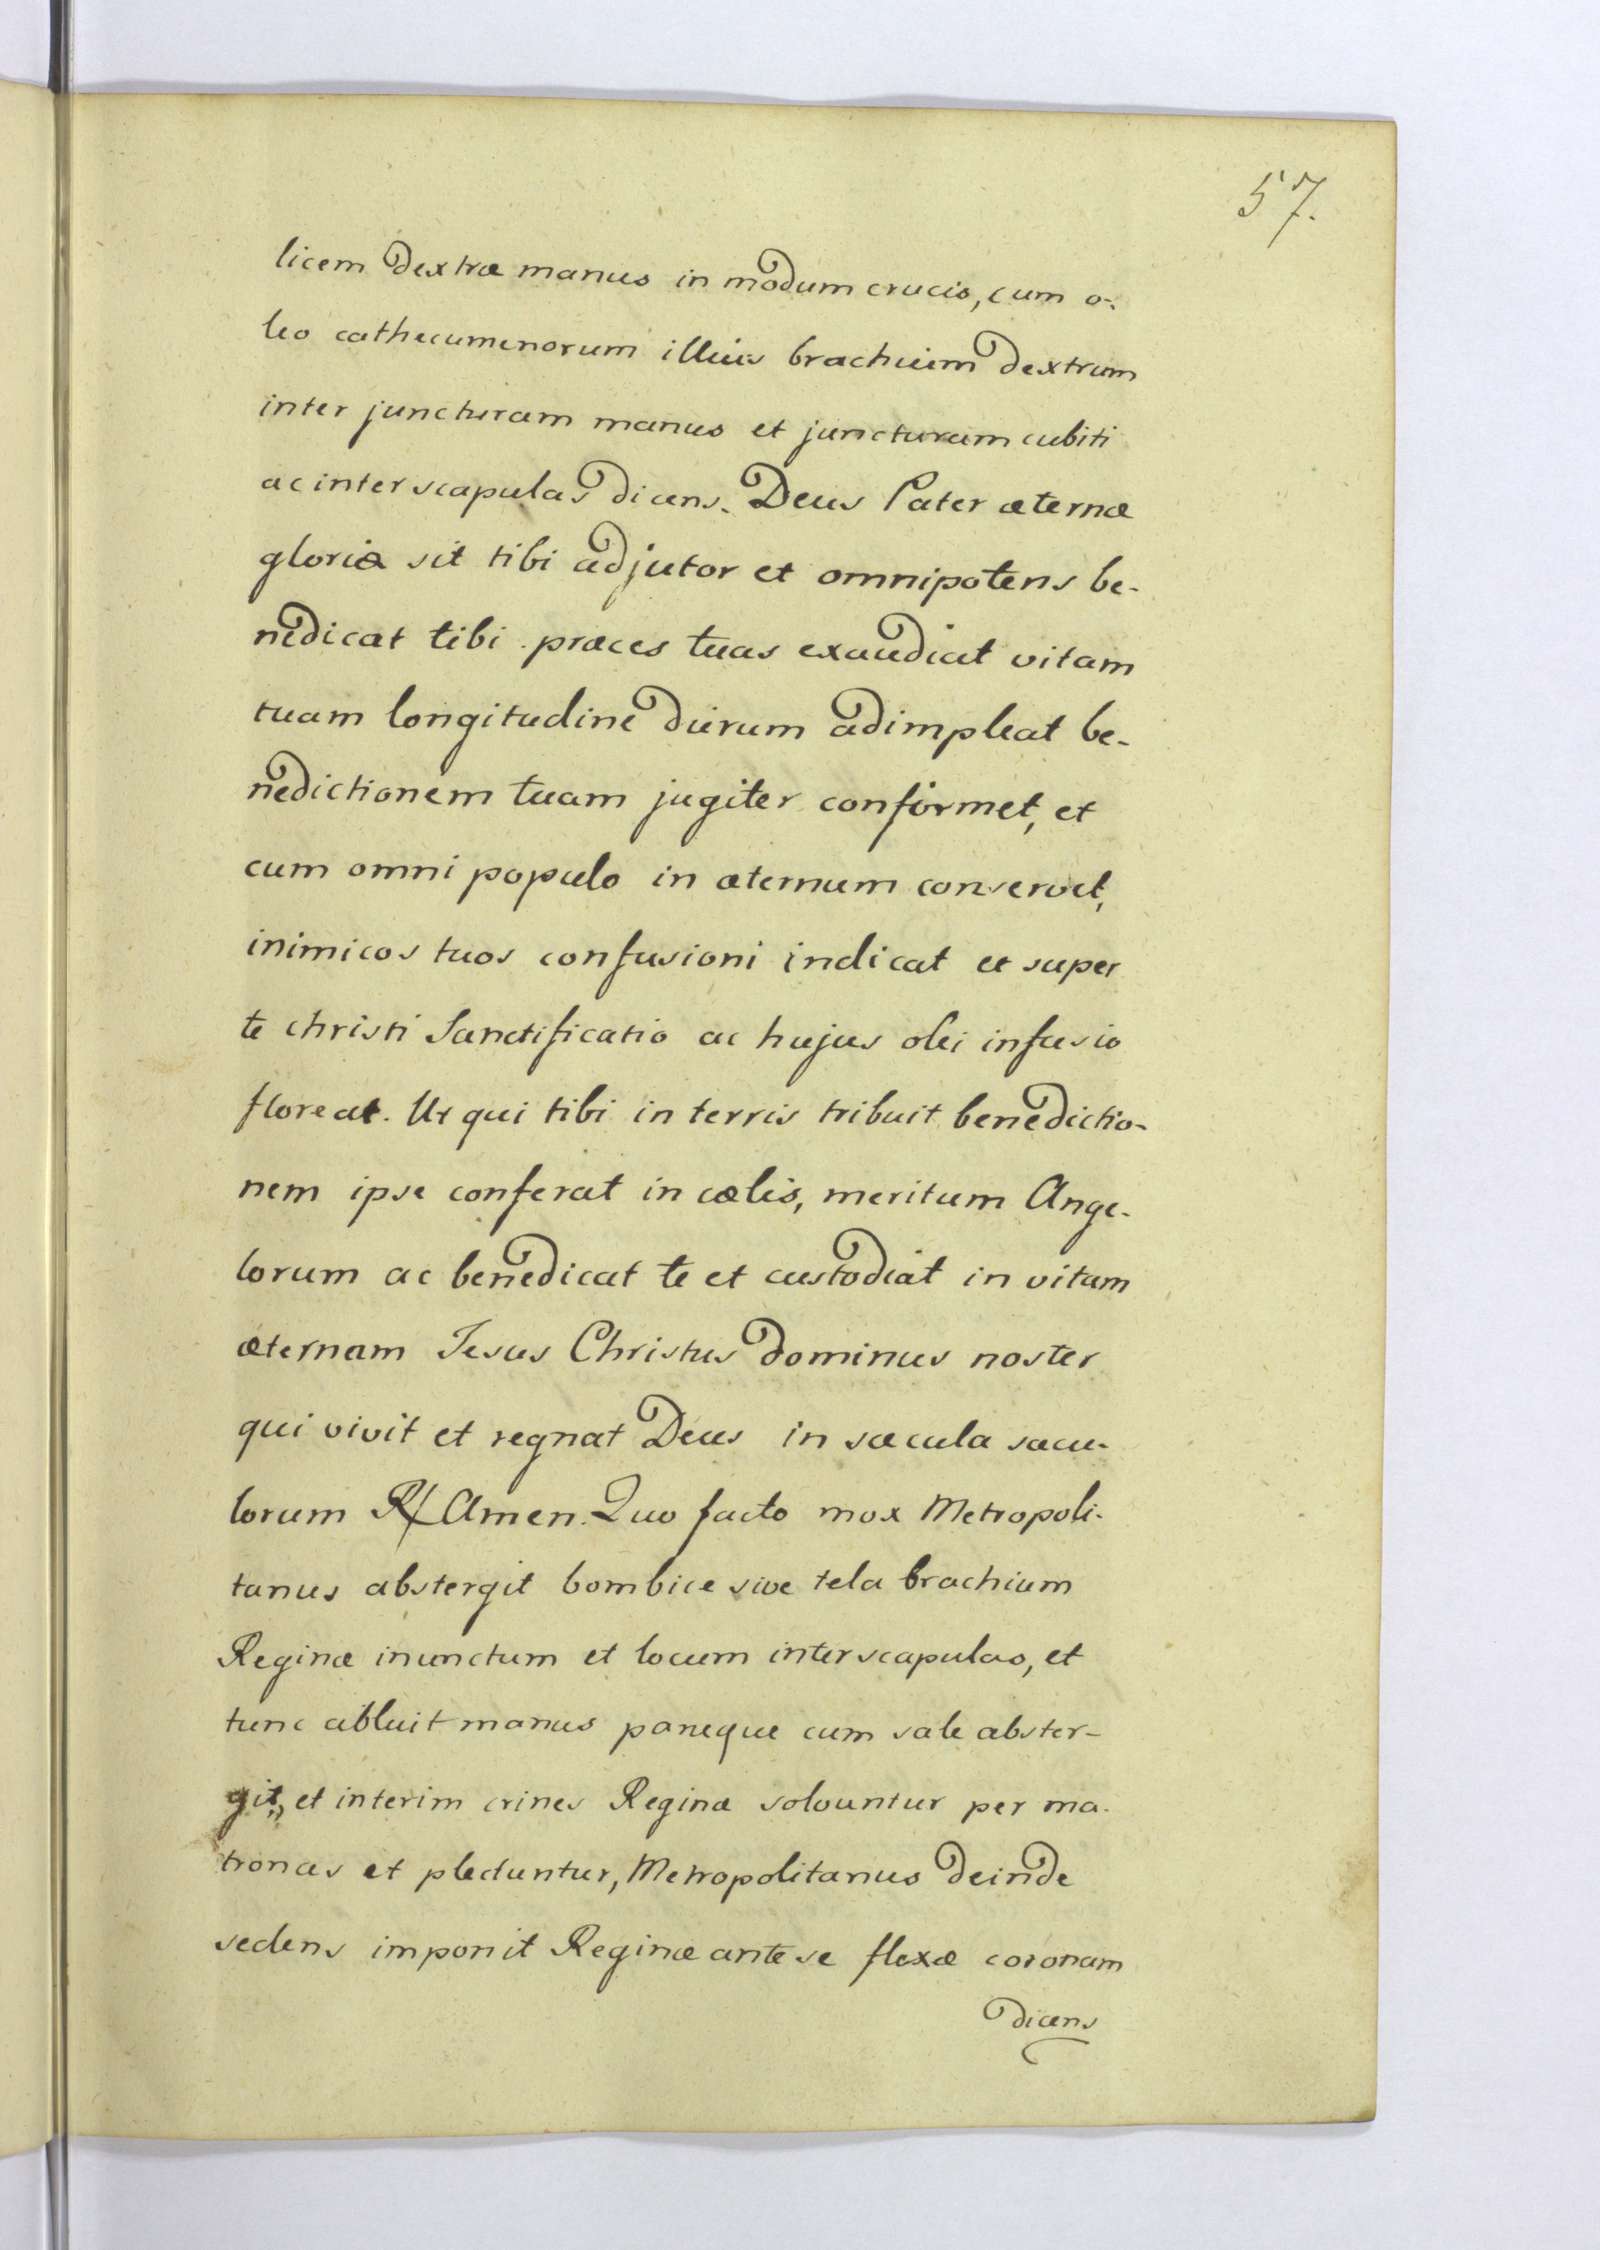 57.
licem dextræ manus in modum crucis, cum o-
leo cathecumenorum illius brachium dextrum
inter juncturam manus et juncturam cubiti
ac inter scapulas dicens. Deus Pater æternæ
gloriæ sit tibi adjutor et omnipotens be-
nedicat tibi præces tuas exaudiat vitam
tuam longitudine dierum adimpleat be-
nedictionem tuam jugiter confirmet, et
cum omni populo in æternum conservet,
inimicos tuos confusioni indicat et super
te christi Sanctificatio ac hujus olei infusio
floreat. Ut qui tibi in terris tribuit benedictio-
nem ipse conferat in cælis, meritum Ange-
lorum ac benedicat te et custodiat in vitam
æternam Jesus Christus dominus noster
qui vivit et regnat Deus in sæcula sæcu-
lorum ℟ Amen. Quo facto mox Metropoli-
tanus abstergit bombice sive tela brachium
Reginæ inunctum et locum inter scapulas, et
tunc abluit manus paneque cum sale abster-
git, et interim crines Reginæ solvuntur per ma-
tronas et plectuntur, Metropolitanus deinde
sedens imponit Reginæ ante se flexæ coronam
dicens